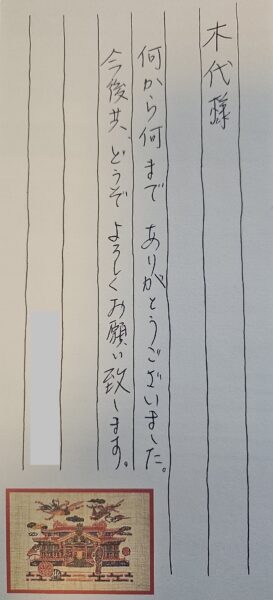 木代様
何から何まで ありがとうございました。
今後共、どうぞ よろしくお願い致します。